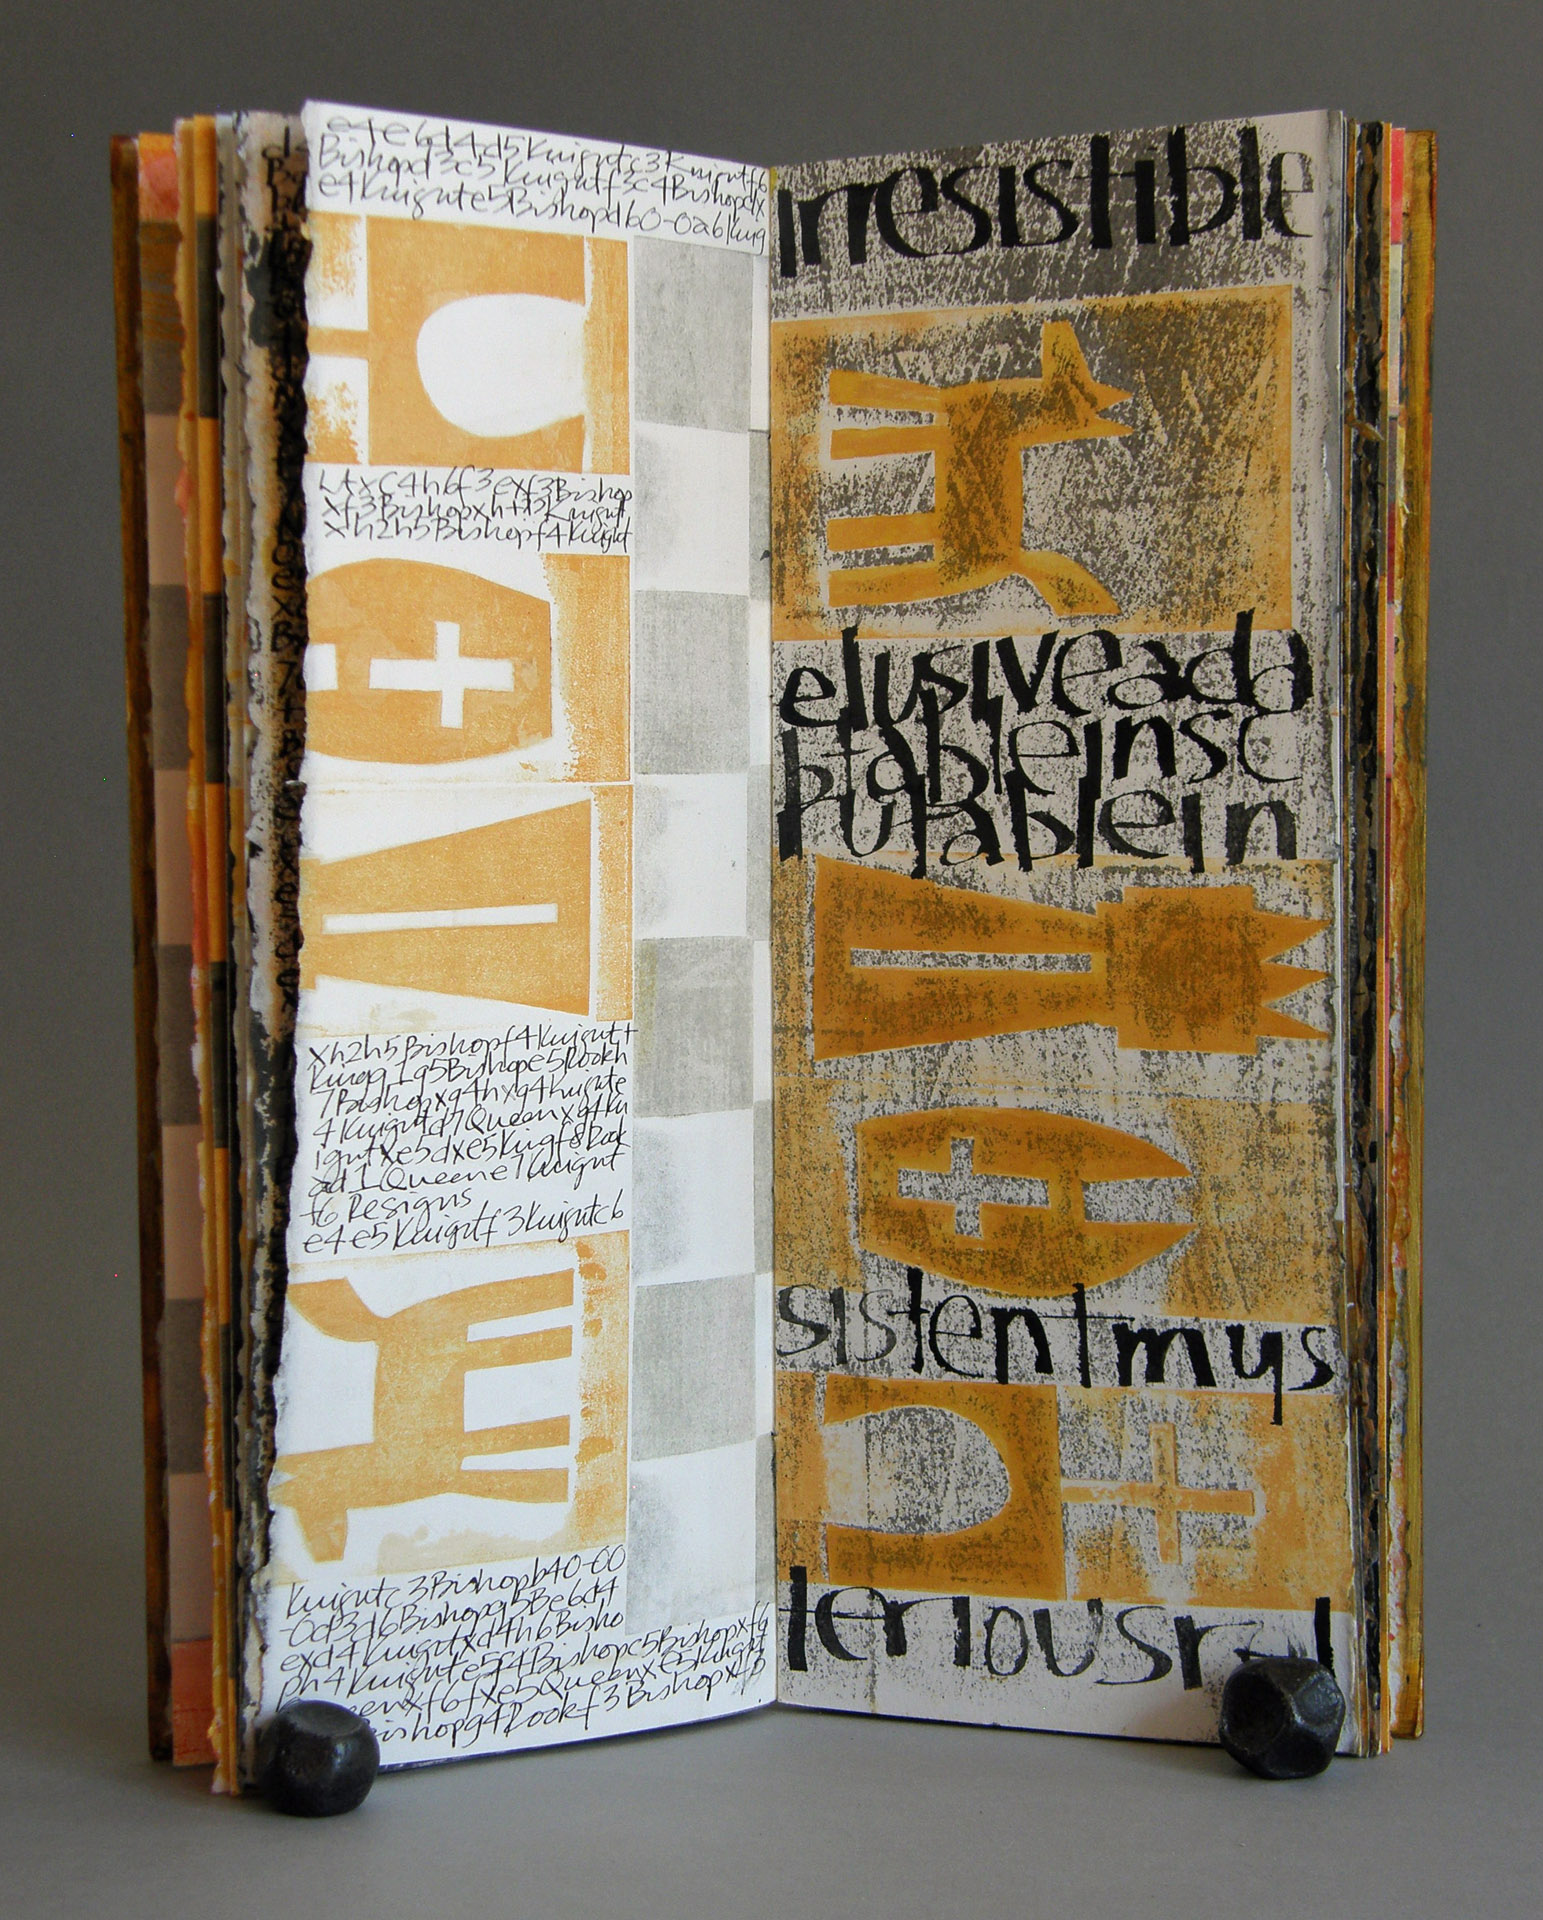 e4e6d4d5Knightc3Knightf6
Bishopd3c5Knightf3c4Bishopdx
e4Knighte5Bishopdb0-0a6Knig
xc4h6f3exf3Bishop
xf3Bishopxh+d3Knight
xh2h5Bishopf4Knight
xh2h5Bishopf4Knight+
Kingg1g5Bishope5Rookh
7Bishopxg4hxg4Knighte
4Knightd7Queenxg4Kn
ightxe5dxe5Kingf8Rook
ad1Queene7Knight
f6 Resigns
e4e5Knightf3Knightc6
Knightc3Bishopb40-00
-0d3d6Bishopg5Be6d4
exd4Knightxd4h6Bisho
ph4Knighte5f4Bishopc5Bishopxf6
Queenxf6fxe5Queenxe5Knight
Bishopg4Rookf3Bishopxf3
irresistible
elusiveada
ptableinsc
rutablein
sistentmys
teriousr